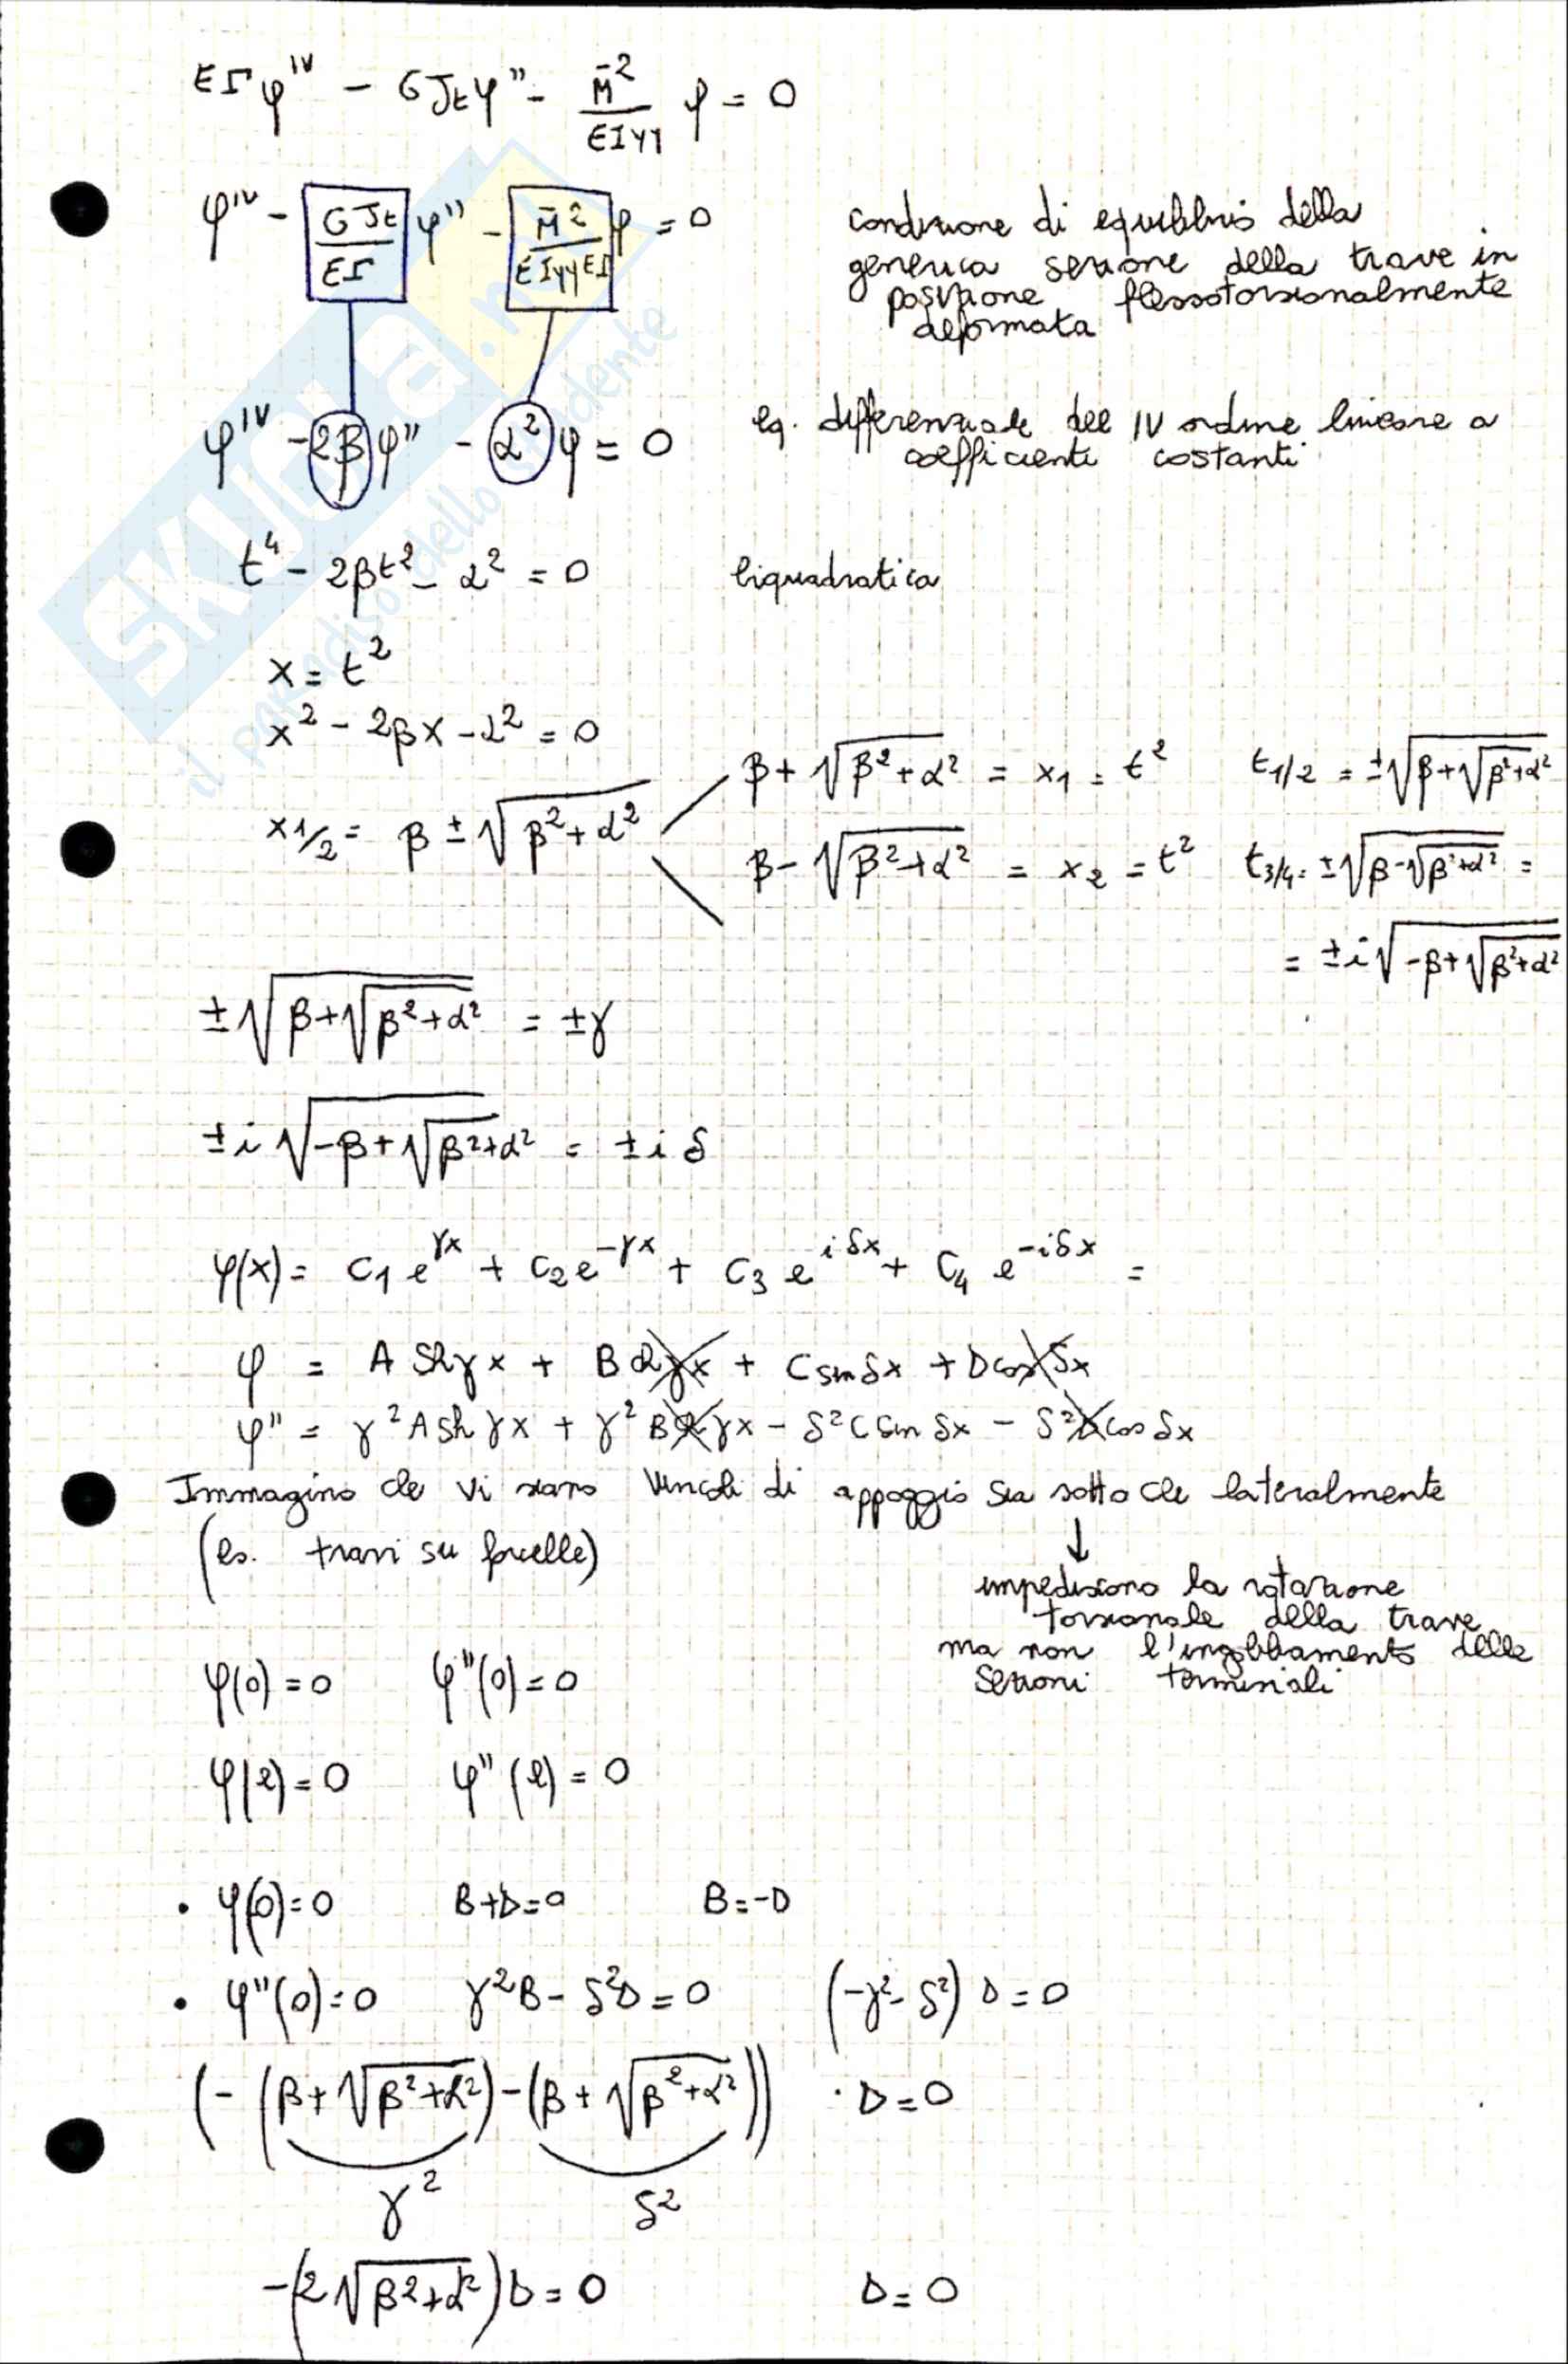 EΓφ^IV - GJtφ'' - M̄²/EIyy φ = 0
φ^IV - GJt/EΓ φ'' - M̄²/EIyyEΓ φ = 0
condizione di equilibrio della
generica sezione della trave in
posizione flessotorsionalmente
deformata
φ^IV - 2βφ'' - α²φ = 0
eq. differenziale del IV ordine lineare a
coefficienti costanti
t⁴ - 2βt² - α² = 0 biquadratica
x = t²
x² - 2βx - α² = 0
x1/2 = β ± √(β²+α²)
β + √(β²+α²) = x₁ = t² t1/2 = ±√(β+√(β²+α²))
β - √(β²+α²) = x₂ = t² t3/4 = ±√(β-√(β²+α²)) =
= ±i√(-β+√(β²+α²))
±√(β+√(β²+α²)) = ±γ
±i√(-β+√(β²+α²)) = ±iδ
φ(x) = C₁e^γx + C₂e^-γx + C₃e^iδx + C₄e^-iδx =
φ = A Shγx + B chγx + C sinδx + D cosδx
φ'' = γ²A sh γx + γ²B ch γx - δ²C sin δx - δ²D cos δx
Immagino che vi siano vincoli di appoggio sia sotto che lateralmente
(es. travi su forcelle)
↓
impediscono la rotazione
torsionale della trave
ma non l'ingobbamento delle
sezioni terminali
φ(0) = 0 φ''(0) = 0
φ(l) = 0 φ''(l) = 0
• φ(0) = 0 B+D=0 B=-D
• φ''(0) = 0 γ²B - δ²D = 0 (-γ²-δ²) D = 0
(-(β+√(β²+α²))-(β+√(β²+α²))) · D = 0
γ² δ²
-(2√(β²+α²))D = 0 D = 0
SKUOLA.net
il paradiso dello studente